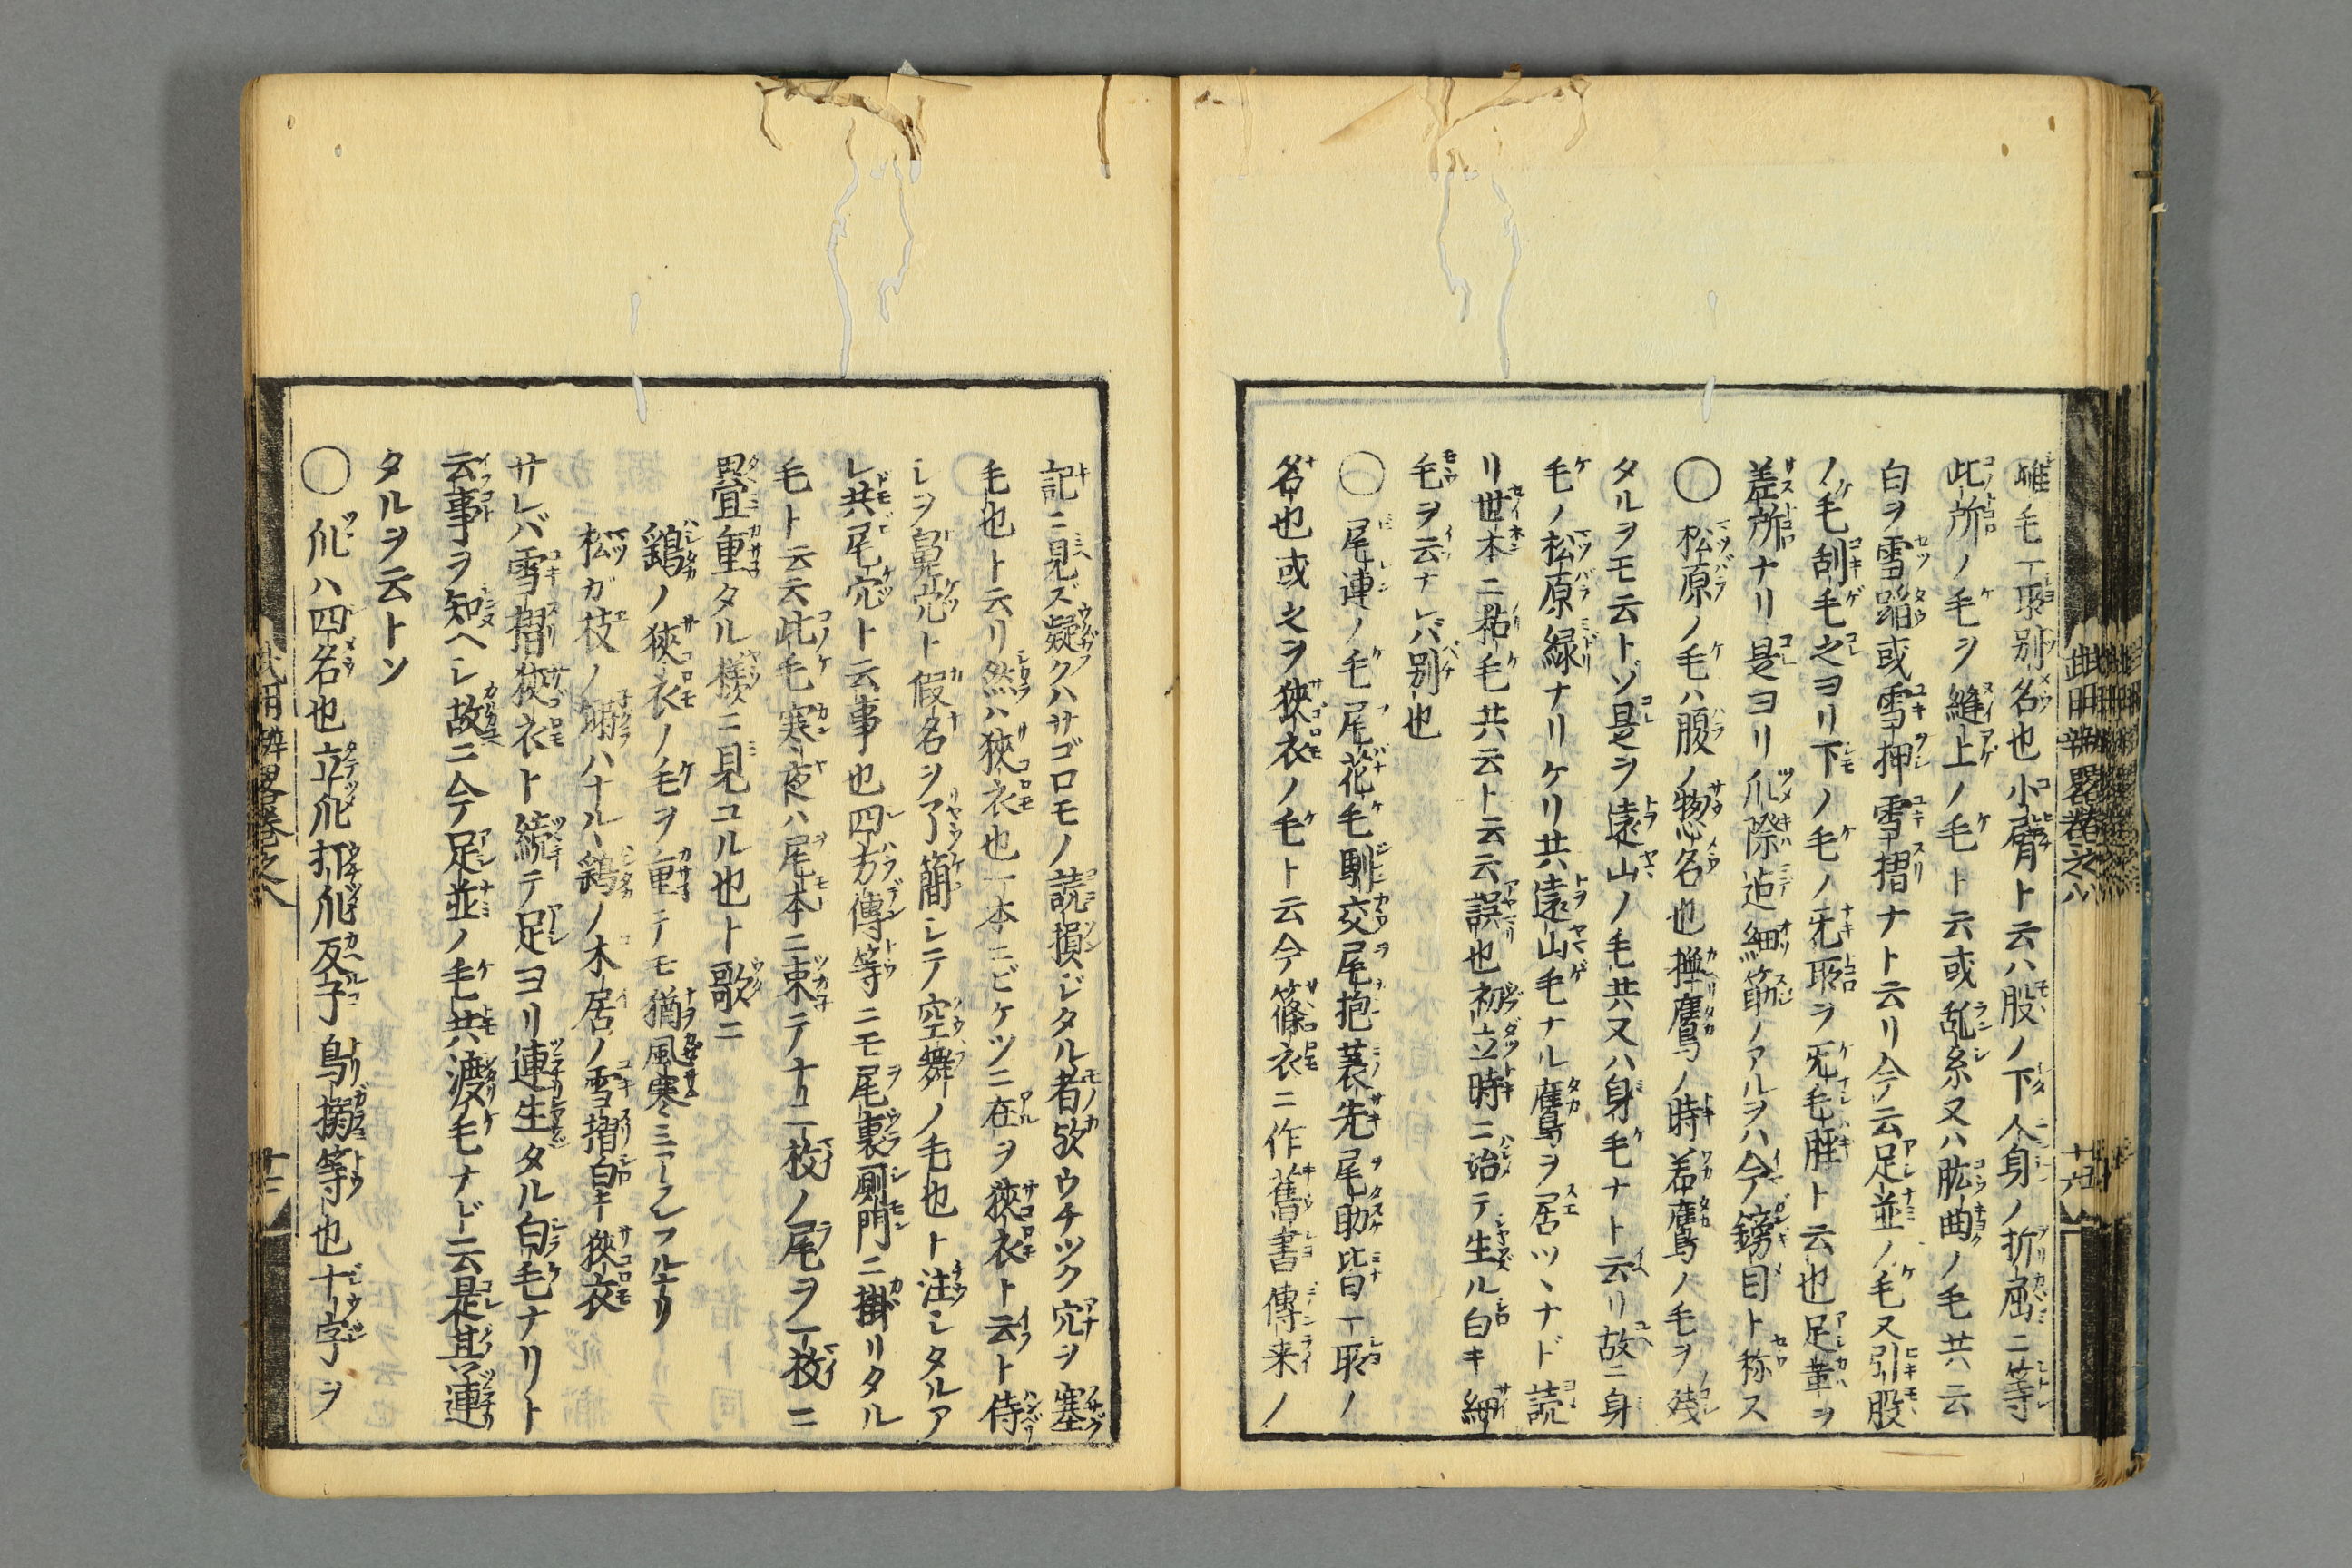 雖毛一所別名也小肩ト云ハ股ノ下人身ノ折屈ニ等
此所ノ毛ヲ縫上ノ毛ト云或乱糸又ハ肱曲ノ毛共云
白ヲ雪蹈或雪押雪摺ナト云リ今云足並ノ毛又引股
ノ毛刮毛之ヨリ下ノ毛ノ无所ヲ旡毛脛ト云也足革ヲ
差所ナリ是ヨリ爪際迠細筋ノアルヲハ今鎊目ト称ス
◯松原ノ毛ハ腹ノ惣名也撫鷹ノ時若鷹ノ毛ヲ残
タルヲモ云トゾ是ヲ遠山ノ毛共又ハ身毛ナト云リ故ニ身
毛ノ松原緑ナリケリ共遠山毛ナル鷹ヲ居ツヽナド読
リ世本ニ粘毛共云ト云誤也初立時ニ始テ生ル白キ細
毛ヲ云ナレバ別也
◯尾連ノ毛尾花毛馴交尾抱蓑先尾助皆一所ノ
名也或之ヲ狹衣ノ毛ト云今篠衣ニ作舊書傳来ノ
記ニ見ズ疑クハサゴロモノ読損ジタル者欤ウチツク穴ヲ塞
毛也ト云リ然ハ狹衣也一本ニビケツニ在ヲ狹衣ト云ト侍
レヲ鼻穴ト假名ヲ了簡シテ空舞ノ毛也ト注シタルア
レ共尾穴ト云事也四方傳等ニモ尾裏厠門ニ掛リタル
毛ト云云此毛寒夜ハ尾本ニ束テナリ一枚ノ尾ヲ一枚ニ
疊重タル樣ニ見ユル也ト歌ニ
鷂ノ狹衣ノ毛ヲ重テモ猶風寒ミアラレフルナリ
松ガ枝ノ嫋ハナルヽ鷂ノ木居ノ雪摺白キ狹衣
サレバ雪摺狹衣ト続テ足ヨリ連生タル白毛ナリト
云事ヲ知ヘシ故ニ今足並ノ毛共渡毛ナド云是其連
タルヲ云トソ
◯爪ハ四名也立爪打爪反子鳥搦等也十字ヲ
武用辨畧巻之八